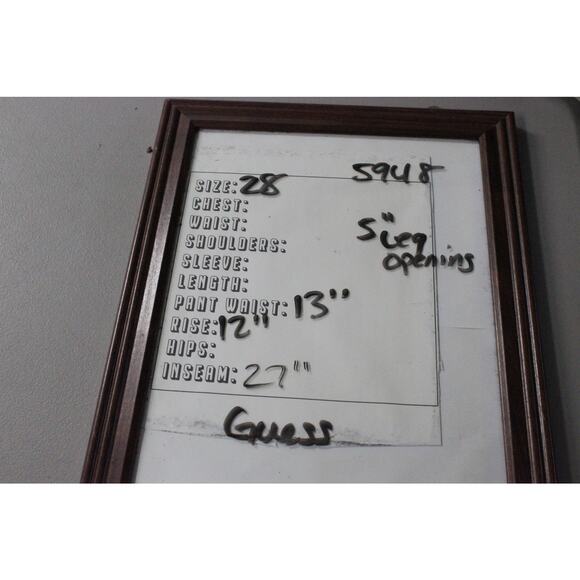 5948
SIZE: 28
CHEST:
WAIST:
SHOULDERS:
5" Leg
opening
SLEEVE:
LENGTH:
PANT WAIST: 13"
RISE: 12"
HIPS:
INSEAM: 27""
Guess